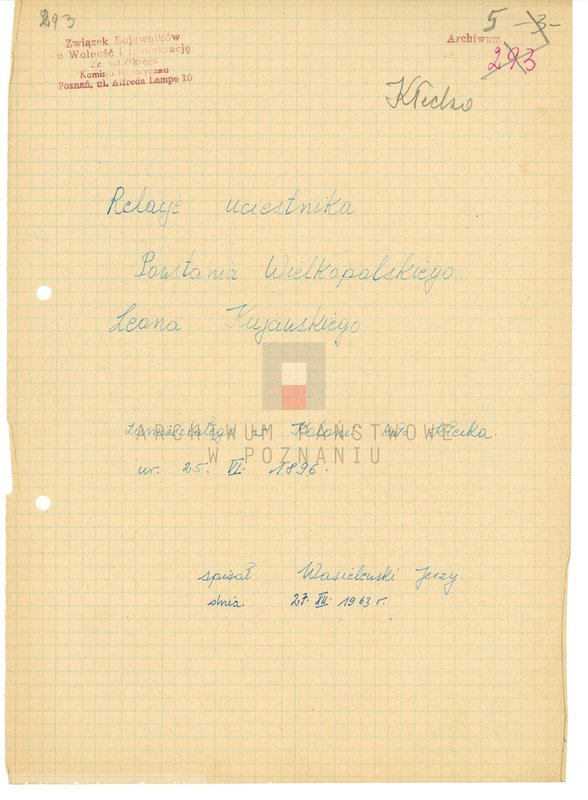 293
5 -3-
Związek Bojowników
o Wolność i Demokrację
Zarząd Okręgu
Komisja Historyczna
Poznań, ul. Alfreda Lampe 10
Archiwum
293
Kłecko
Relacje uczestnika
Powstania Wielkopolskiego.
Leona Kujawskiego
zamieszkałego w Kłecka.
ARCHIWUM PAŃSTWOWE
W POZNANIU
ur. 25. VI. 1896.
spisał Wasielewski Jerzy.
dnia. 27. XII. 1963 r.